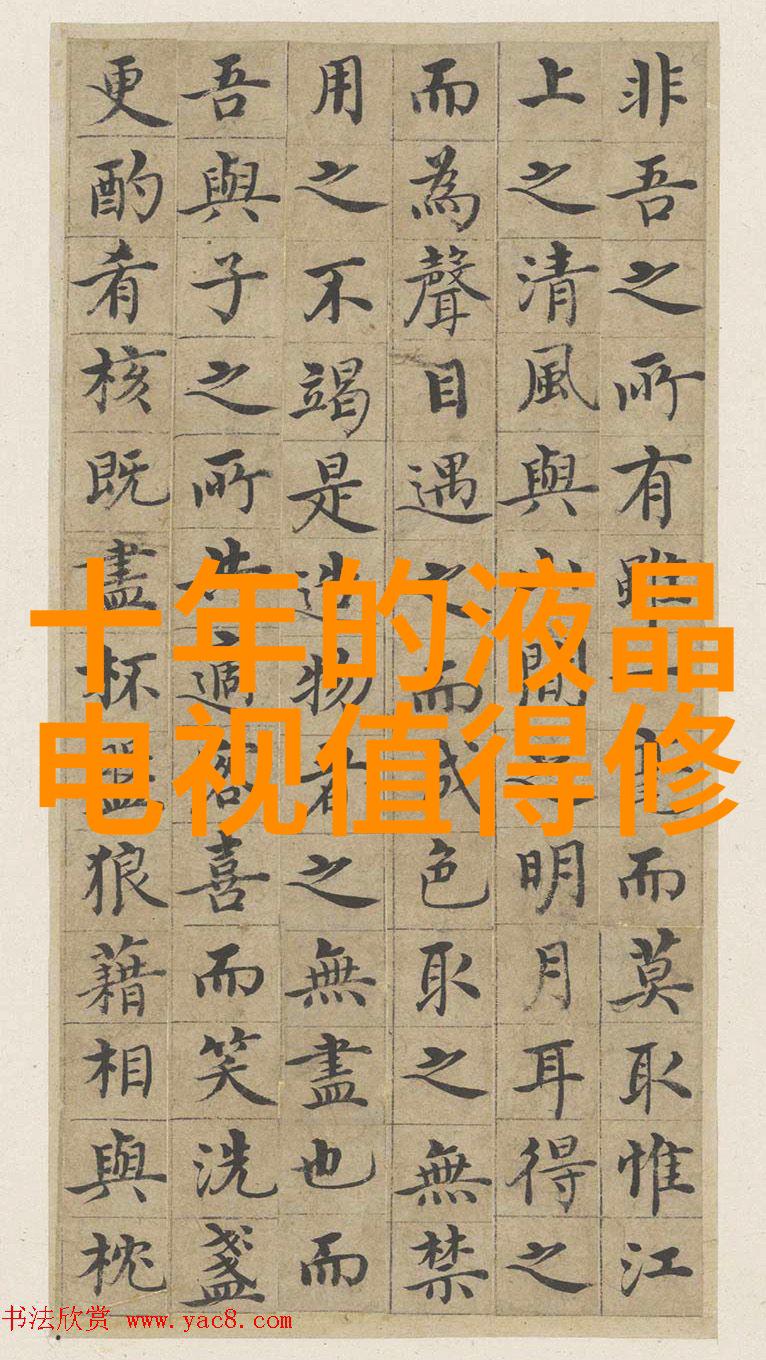 非吾之所有雖一毫而莫取惟江
上之清風與山間之明月耳得之
而為聲目遇之而成色取之無禁
用之不竭是造物者之無盡也而
吾與子之所共適客喜而笑洗盞
更酌肴核既盡杯盤狼藉相與枕
十年的液晶
电视值得修
书法欣赏 www.yac8.com